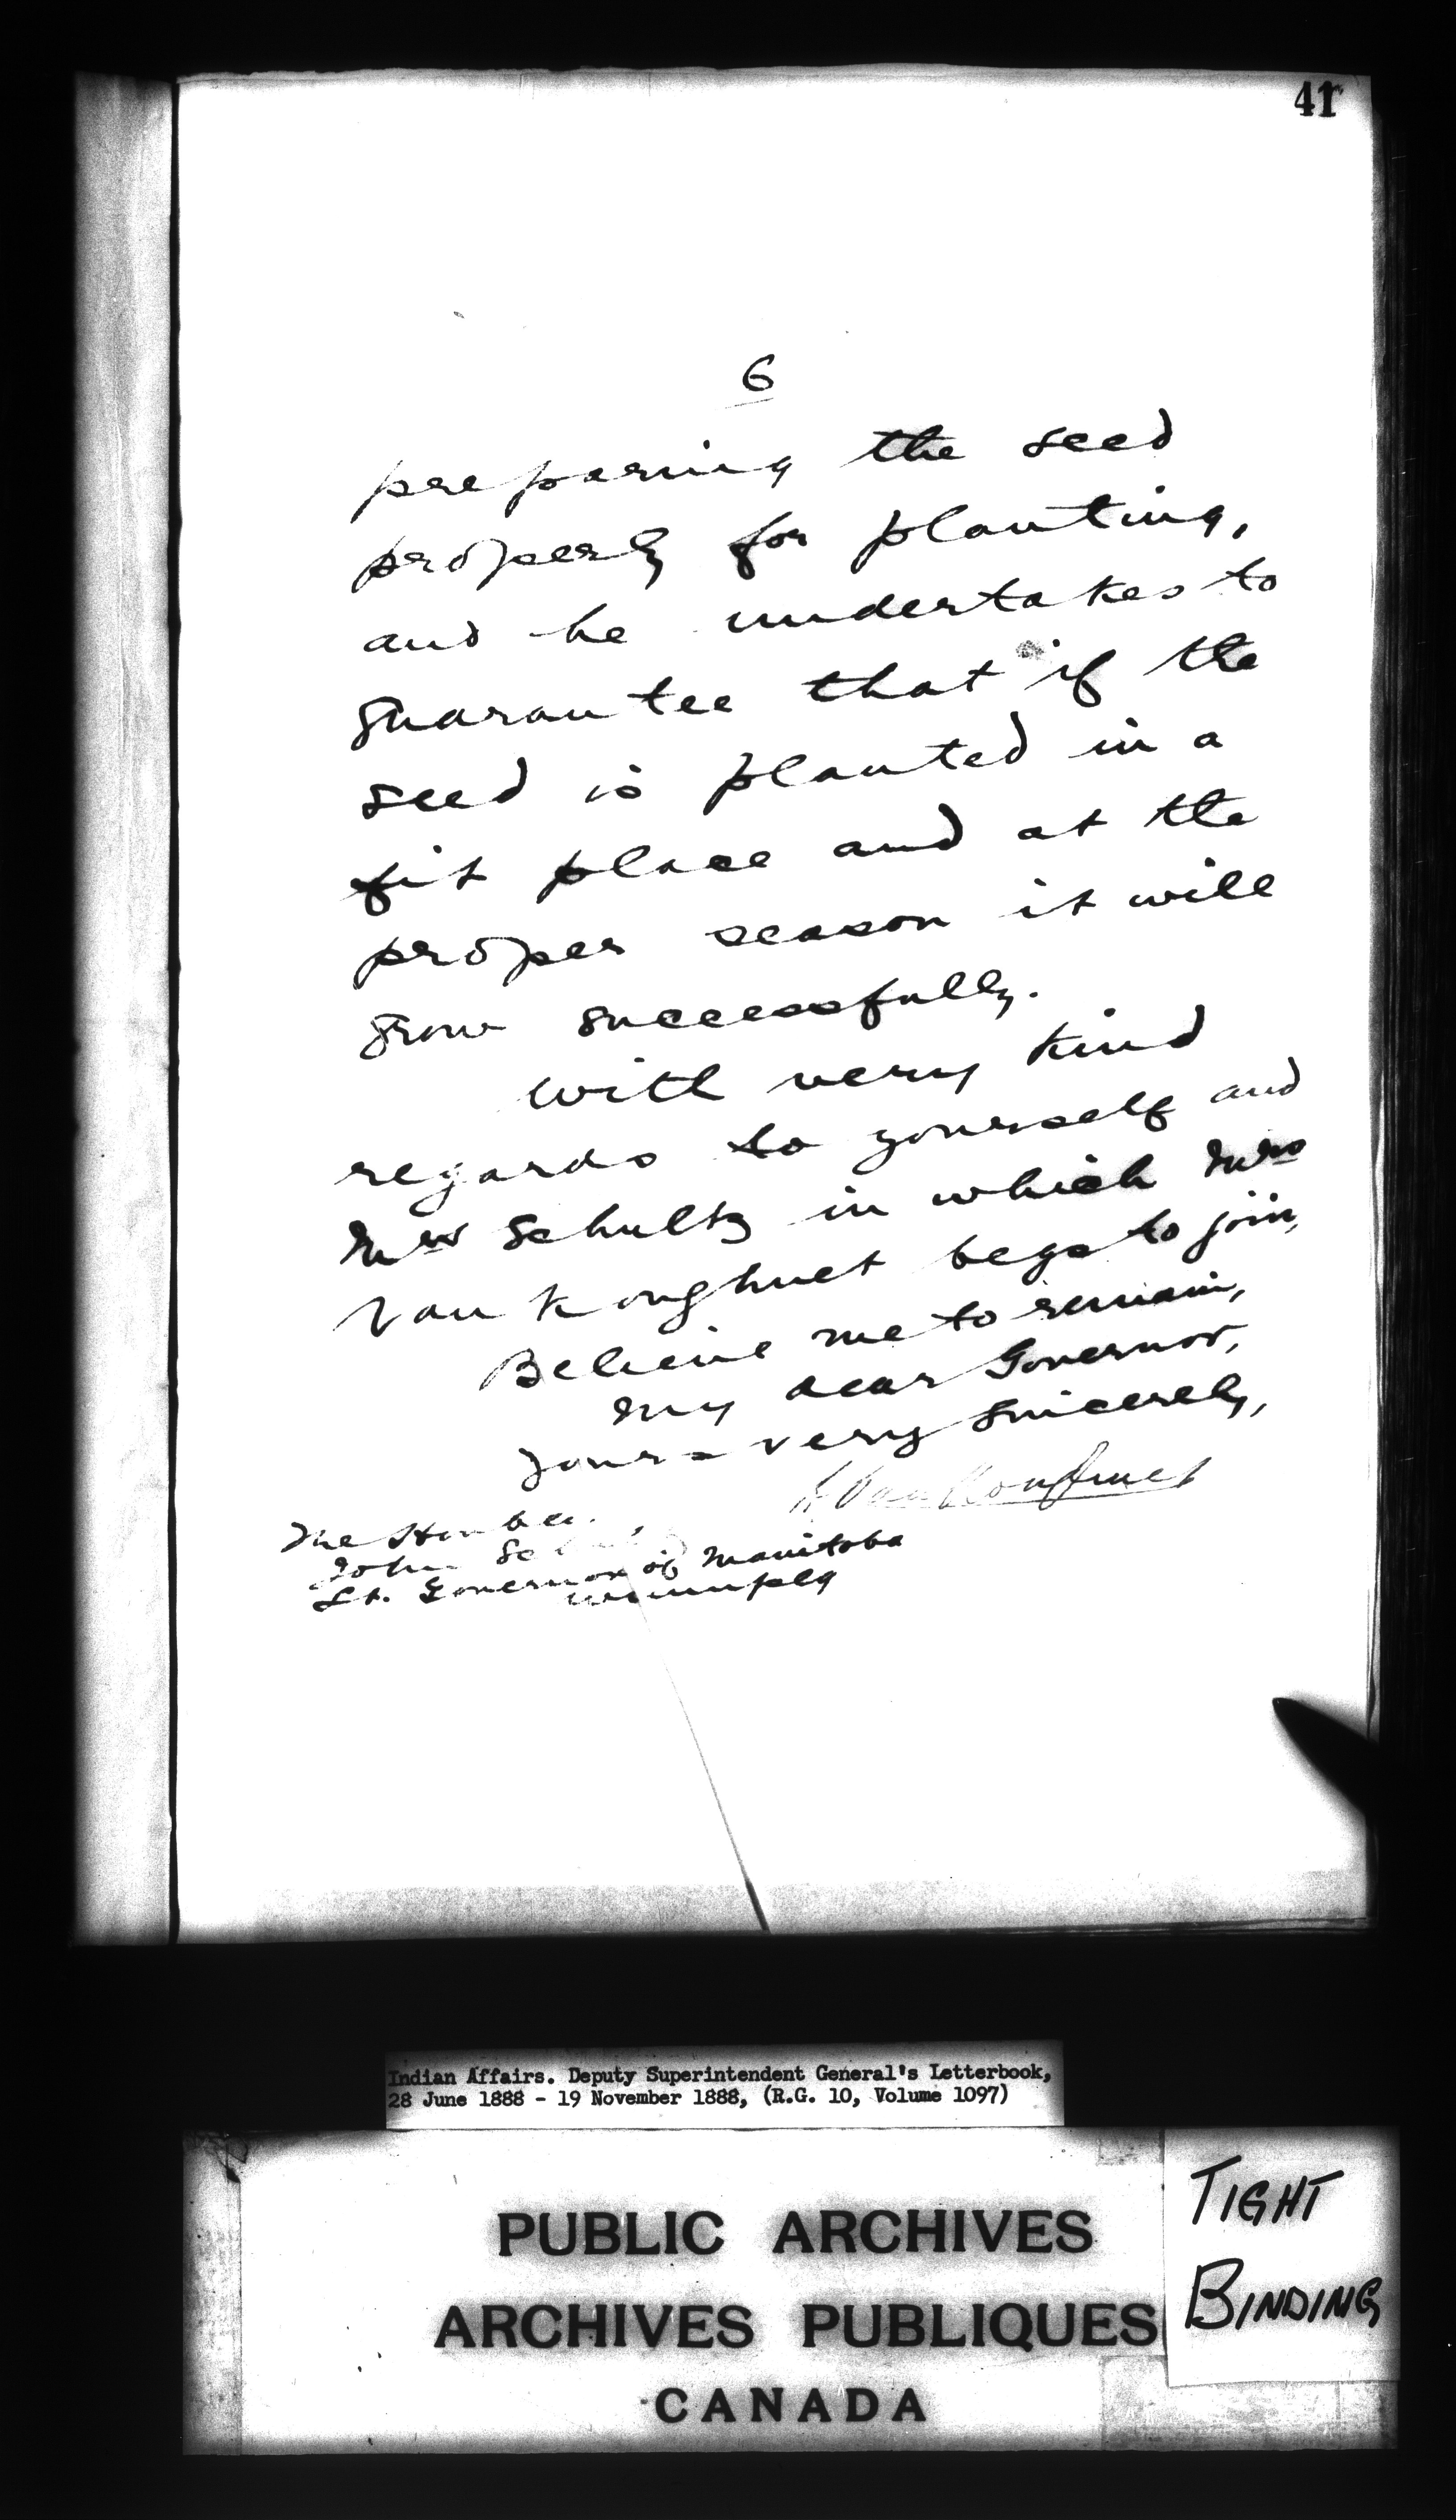 41
6
preparing the seed
properly for planting,
and he undertakes to
guarantee that if the
seed is planted in a
fit place and at the
proper season it will
grow successfully.
With very kind
regards to yourself and
Mrs Schultz in which Mrs
Vankoughnet begs to join,
Believe me to remain,
My dear Governor,
Yours very sincerely,
L Vankoughnet
The Honble.
John
Lt. Governor of Manitoba
Winnipeg
Indian Affairs. Deputy Superintendent General's Letterbook,
28 June 1888 - 19 November 1888, (R.G. 10, Volume 1097)
PUBLIC ARCHIVES
ARCHIVES PUBLIQUES
CANADA
TIGHT
BINDING